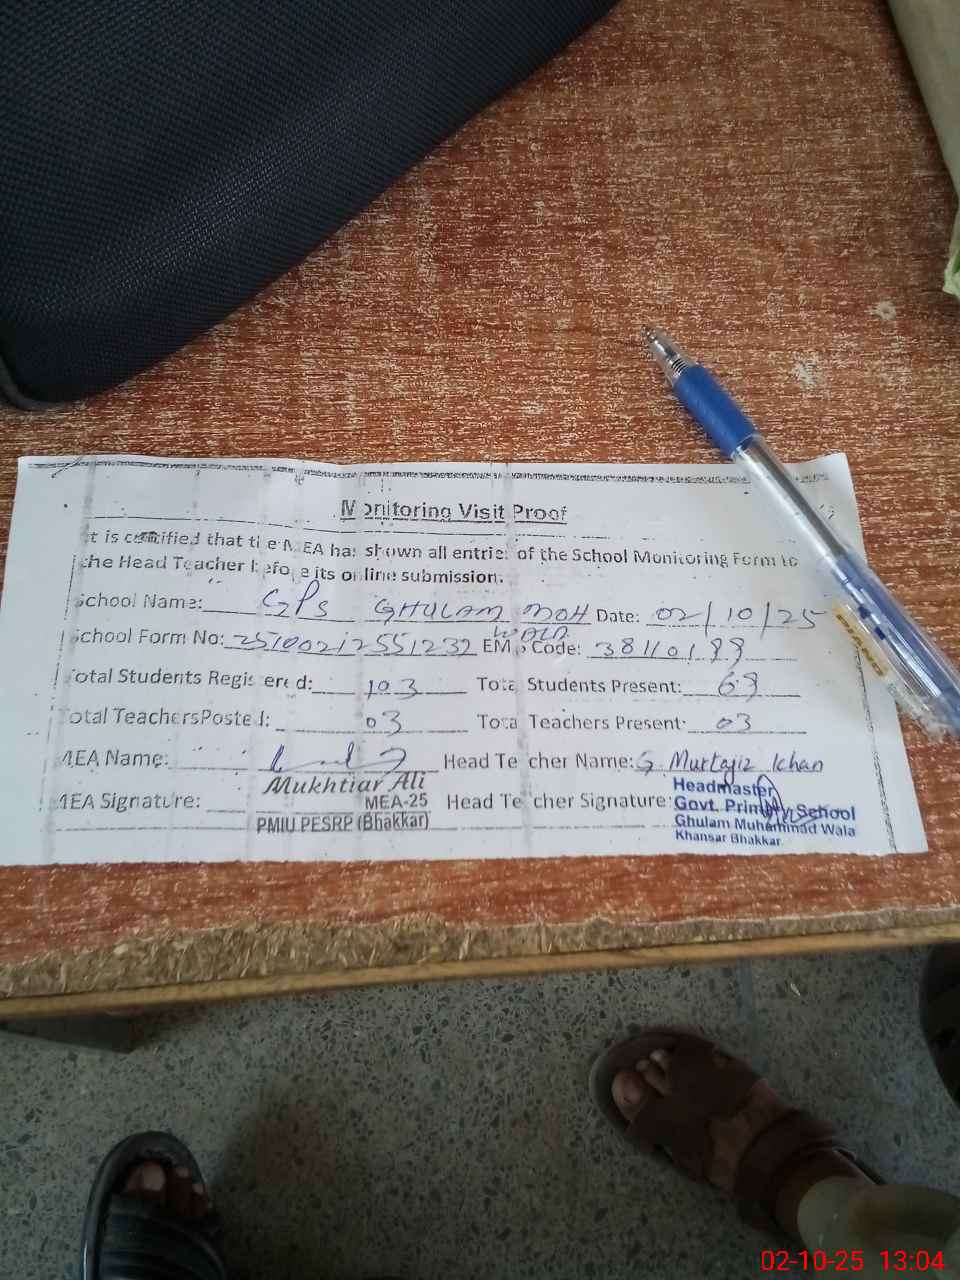 Monitoring Visit Proof
It is certified that the MEA has shown all entries of the School Monitoring Form to
the Head Teacher before its online submission.
School Name: GPS GHULAM MOH WALA Date: 02/10/25
School Form No: 25100212551232 EMIS Code:
Total Students Registered: 103 Total Students Present: 69
Total Teachers Posted: 03 Total Teachers Present: 03
MEA Name: Head Teacher Name: G. Murtajiz Khan
Mukhtiar Ali
MEA Signature: MEA-25 Head Teacher Signature:
PMIU PESRP (Bhakkar)
Headmaster
Govt. Primary School
Ghulam Muhammad Wala
Khansar Bhakkar
02-10-25 13:04